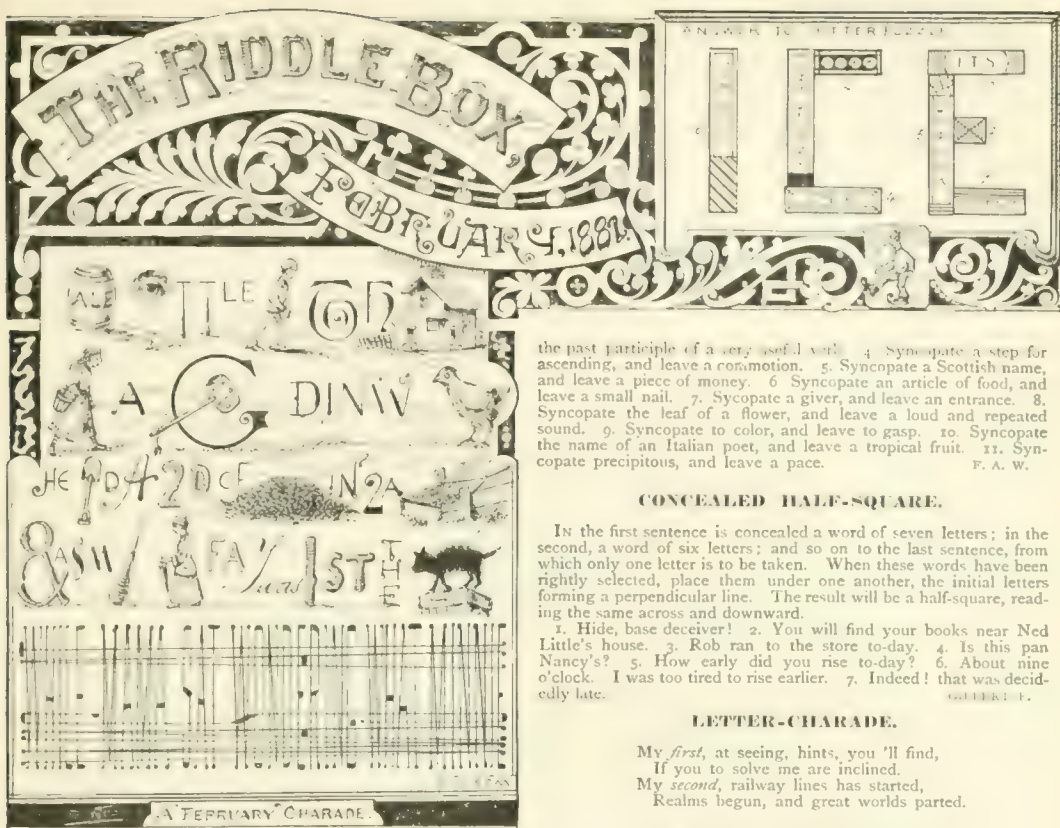 THE RIDDLE BOX,
FEBRUARY, 1882.
ANSWER TO
ICE
ITS
ALE
LE
A
DINW
HE
IN 2 A
& AS
was 1 ST THE
A "FEBRUARY" CHARADE.
the past participle of a very useful verb. 4 Syncopate a step for
ascending, and leave a commotion. 5. Syncopate a Scottish name,
and leave a piece of money. 6 Syncopate an article of food, and
leave a small nail. 7. Sycopate a giver, and leave an entrance. 8.
Syncopate the leaf of a flower, and leave a loud and repeated
sound. 9. Syncopate to color, and leave to gasp. 10. Syncopate
the name of an Italian poet, and leave a tropical fruit. 11. Syn-
copate precipitous, and leave a pace. F. A. W.
CONCEALED HALF-SQUARE.
IN the first sentence is concealed a word of seven letters; in the
second, a word of six letters; and so on to the last sentence, from
which only one letter is to be taken. When these words have been
rightly selected, place them under one another, the initial letters
forming a perpendicular line. The result will be a half-square, read-
ing the same across and downward.
1. Hide, base deceiver! 2. You will find your books near Ned
Little's house. 3. Rob ran to the store to-day. 4. Is this pan
Nancy's? 5. How early did you rise to-day? 6. About nine
o'clock. I was too tired to rise earlier. 7. Indeed! that was decid-
edly late.
LETTER-CHARADE.
My first, at seeing, hints, you 'll find,
If you to solve me are inclined.
My second, railway lines has started,
Realms begun, and great worlds parted.